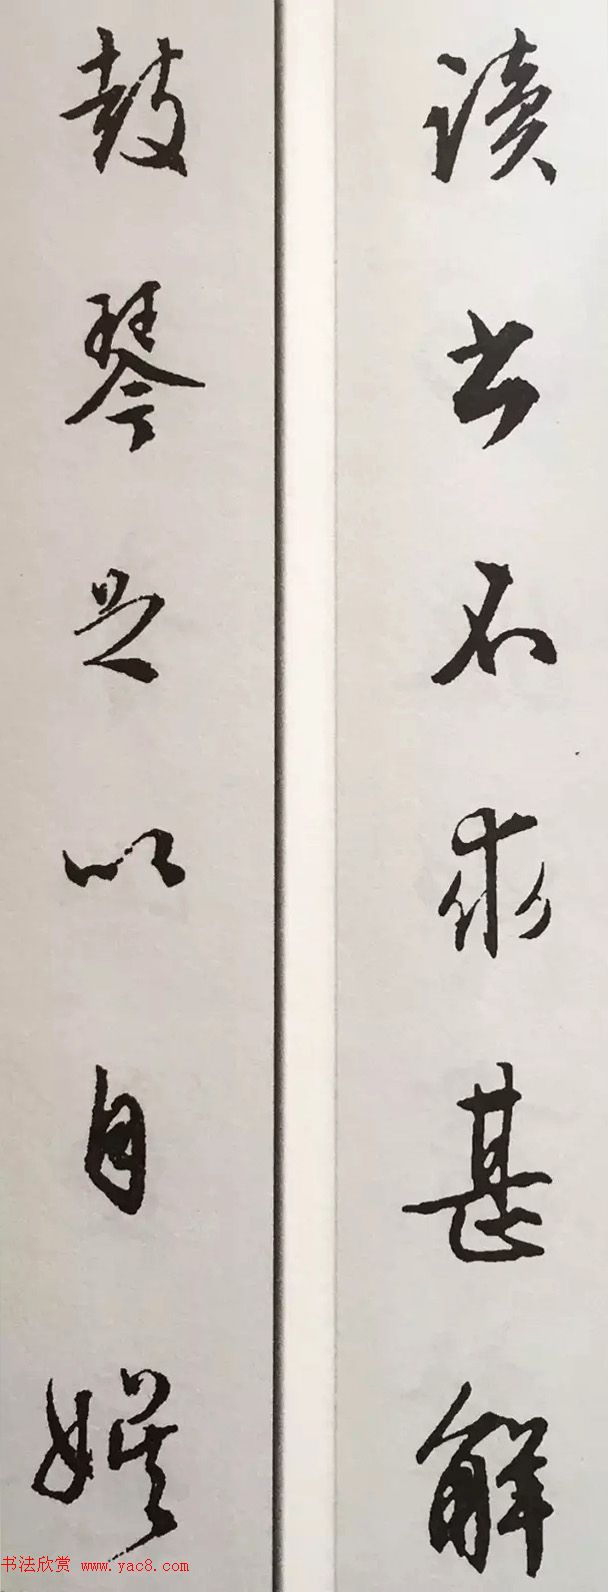 讀書不求甚解
鼓琴足以自娛
书法欣赏 www.yac8.com